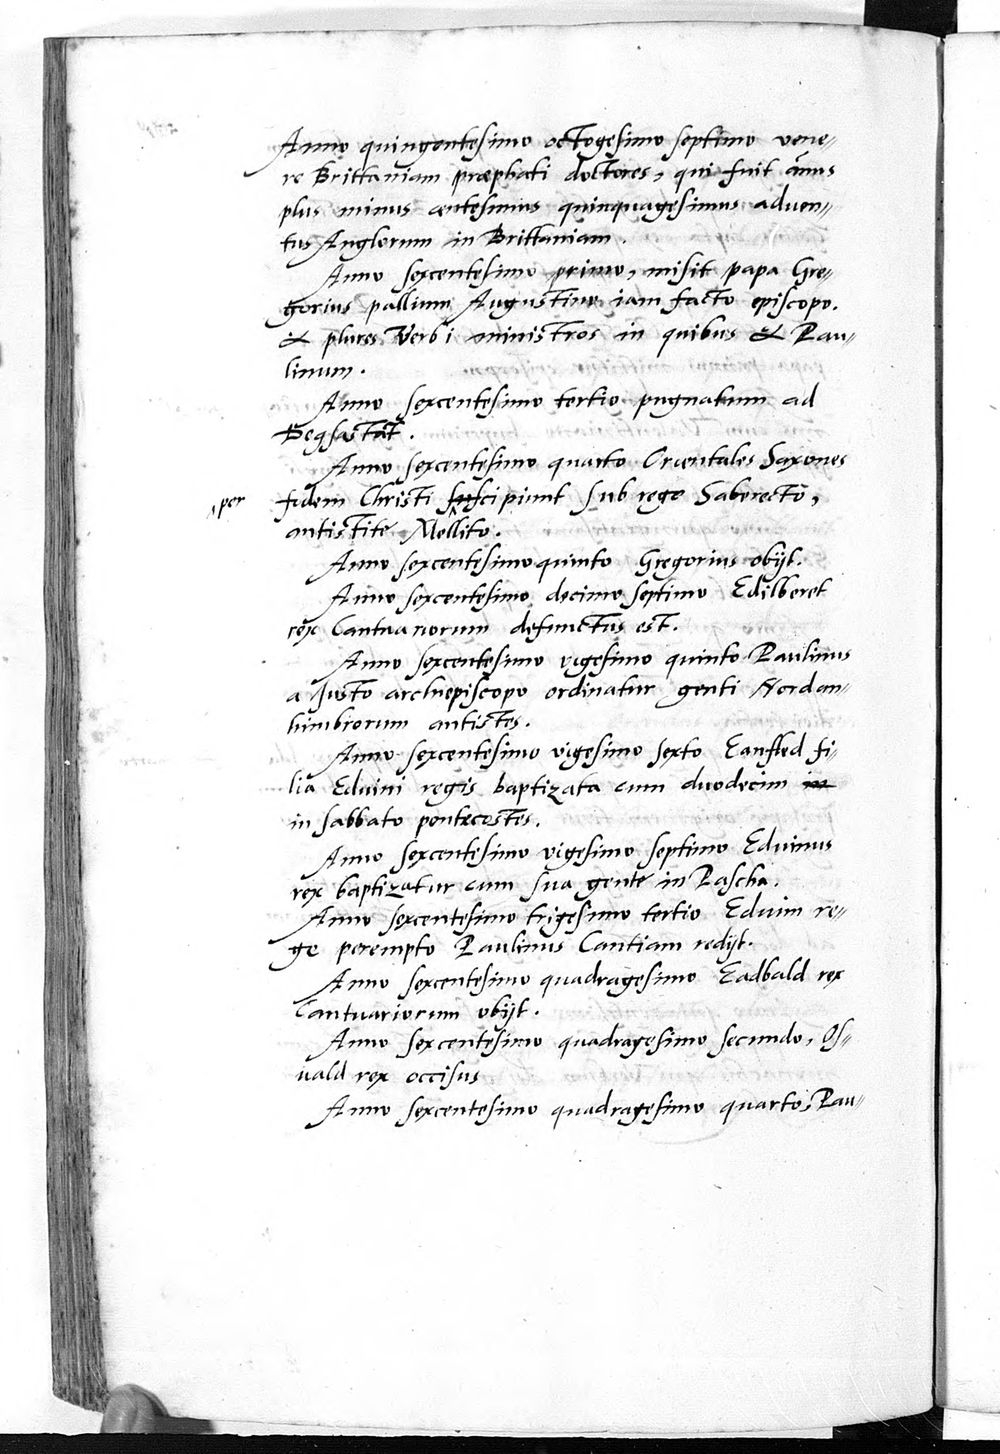 Anno quingentesimo octogesimo septimo vene//
re Brittaniam præphati doctores, qui fuit ãnus
plus minus centesimus quinquagesimus aduen//
tus Anglorum in Brittaniam.
Anno sexcentesimo primo, misit papa Gre//
gorius pallium Augustino iam facto episcopo.
& plures Verbi ministros in quibus & Pau//
linum.
Anno sexcentesimo tertio pugnatum ad
Degsastãt.
Anno sexcentesimo quarto Orientales Saxones
fidem Christi suscipiunt sub rege Saberecto,
per
antistite Mellito.
Anno sexcentesimo quinto Gregorius obijt.
Anno sexcentesimo decimo septimo Edilberet
rex Cantuariorum defunctus est.
Anno sexcentesimo vigesimo quinto Paulinus
a Justo archiepiscopo ordinatur genti Nordan//
humbrorum antistes.
Anno sexcentesimo vigesimo sexto Eanfled fi//
lia Eduini regis baptizata cum duodecim in
in sabbato pentecostes.
Anno sexcentesimo vigesimo septimo Eduinus
rex baptizatur cum sua gente in Pascha.
Anno sexcentesimo trigesimo tertio Eduini re//
ge perempto Paulinus Cantiam redijt.
Anno sexcentesimo quadragesimo Eadbald rex
Cantuariorum obijt.
Anno sexcentesimo quadragesimo secundo, Os//
uald rex occisus
Anno sexcentesimo quadragesimo quarto, Pau//